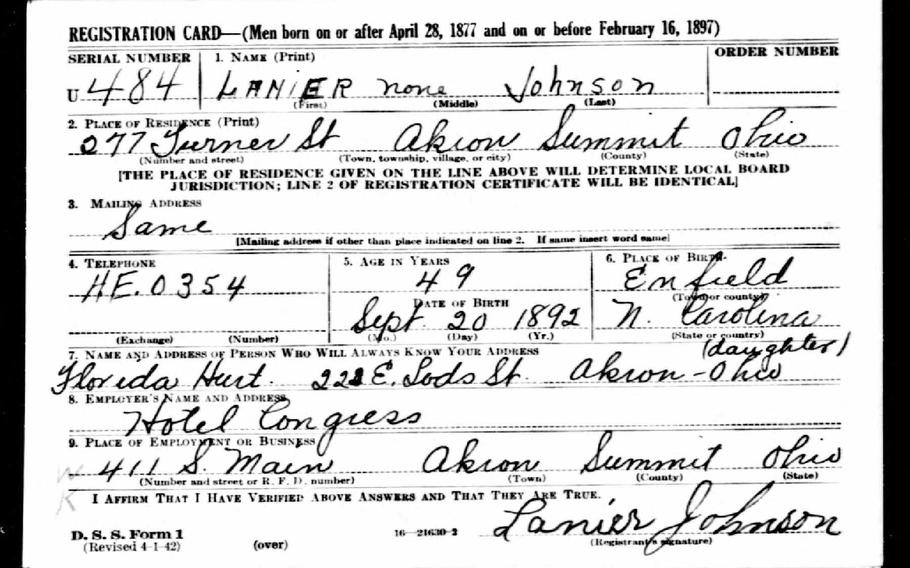 REGISTRATION CARD—(Men born on or after April 28, 1877 and on or before February 16, 1897)
SERIAL NUMBER 1. NAME (Print) ORDER NUMBER
U 484 LANIER none Johnson
(First) (Middle) (Last)
2. PLACE OF RESIDENCE (Print)
277 Turner St Akron Summit Ohio
(Number and street) (Town, township, village, or city) (County) (State)
[THE PLACE OF RESIDENCE GIVEN ON THE LINE ABOVE WILL DETERMINE LOCAL BOARD
JURISDICTION; LINE 2 OF REGISTRATION CERTIFICATE WILL BE IDENTICAL]
3. MAILING ADDRESS
Same
[Mailing address if other than place indicated on line 2. If same insert word same]
4. TELEPHONE 5. AGE IN YEARS 6. PLACE OF BIRTH
HE. 0354 49 Enfield
DATE OF BIRTH (Town or county)
Sept. 20 1892 N. Carolina
(Exchange) (Number) (Mo.) (Day) (Yr.) (State or country)
7. NAME AND ADDRESS OF PERSON WHO WILL ALWAYS KNOW YOUR ADDRESS (daughter)
Florida Hurt. 222 E. Lods St. Akron - Ohio
8. EMPLOYER'S NAME AND ADDRESS
Hotel Congress
9. PLACE OF EMPLOYMENT OR BUSINESS
411 S. Main Akron Summit Ohio
(Number and street or R. F. D. number) (Town) (County) (State)
I AFFIRM THAT I HAVE VERIFIED ABOVE ANSWERS AND THAT THEY ARE TRUE.
D. S. S. Form 1 16—21630-2 Lanier Johnson
(Revised 4-1-42) (over) (Registrant's signature)